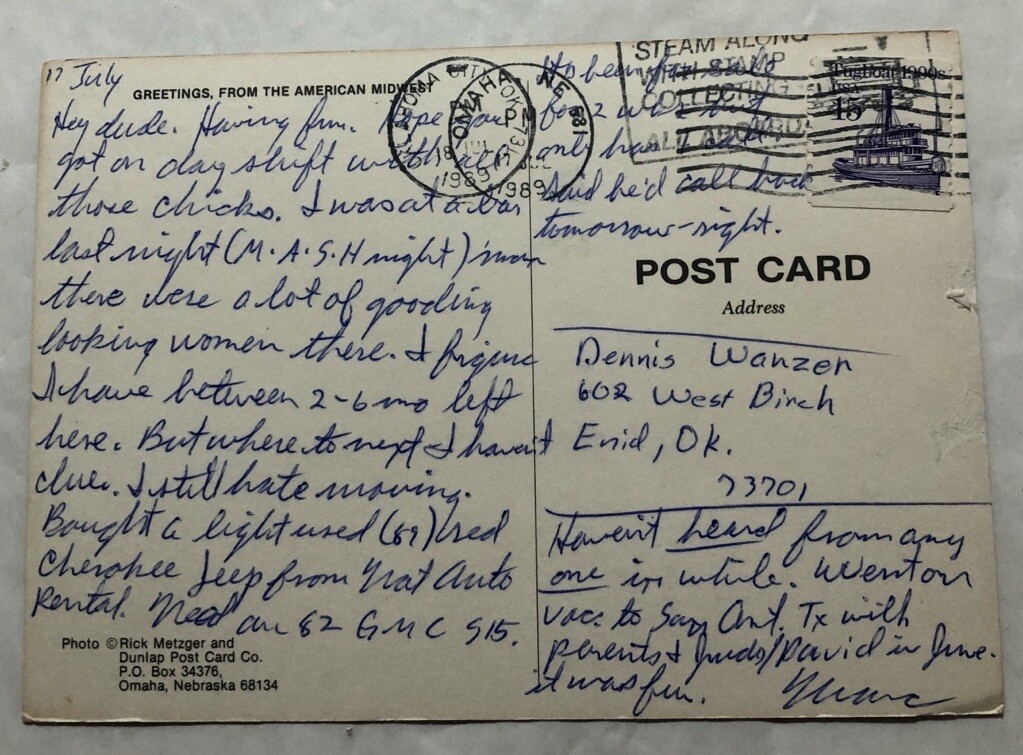 17 July
GREETINGS, FROM THE AMERICAN MIDWEST
Hey dude. Having fun. Hope you
got on day shift with all
those chicks. I was at a bar
last night (M.A.S.H night) man
there were a lot of gooding
looking women there. I figure
I have between 2-6 mo left
here. But where to next I haven't
clue. I still hate moving.
Bought a light used (89) red
Cherokee Jeep from Nat Auto
Rental. Need an 82 GMC S15.
Photo © Rick Metzger and
Dunlap Post Card Co.
P.O. Box 34376,
Omaha, Nebraska 68134
Its been
for 2
only had
said he'd call back
tomorrow-night.
OMAHA NE 681
PM
17 JUL
1989
OKLAHOMA CITY OK 731
18 JUL
1989
STEAM ALONG
WITH STAMP
COLLECTING
ALL ABOARD
Tugboat 1900s
USA
15
POST CARD
Address
Dennis Wanzer
602 West Birch
Enid, OK.
73701
Haven't heard from any
one in while. Went on
vac. to San Ant. Tx with
parents & Judy/David in June.
it was fun. Marc